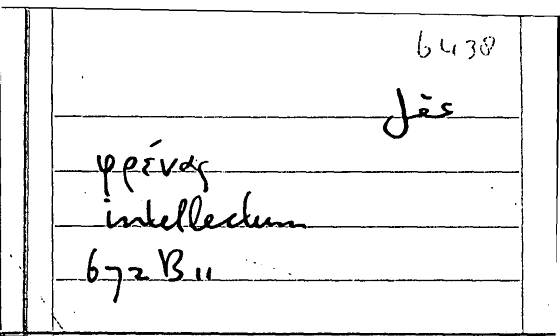 6438
Jès
φρένας
intellectum
672 B 11